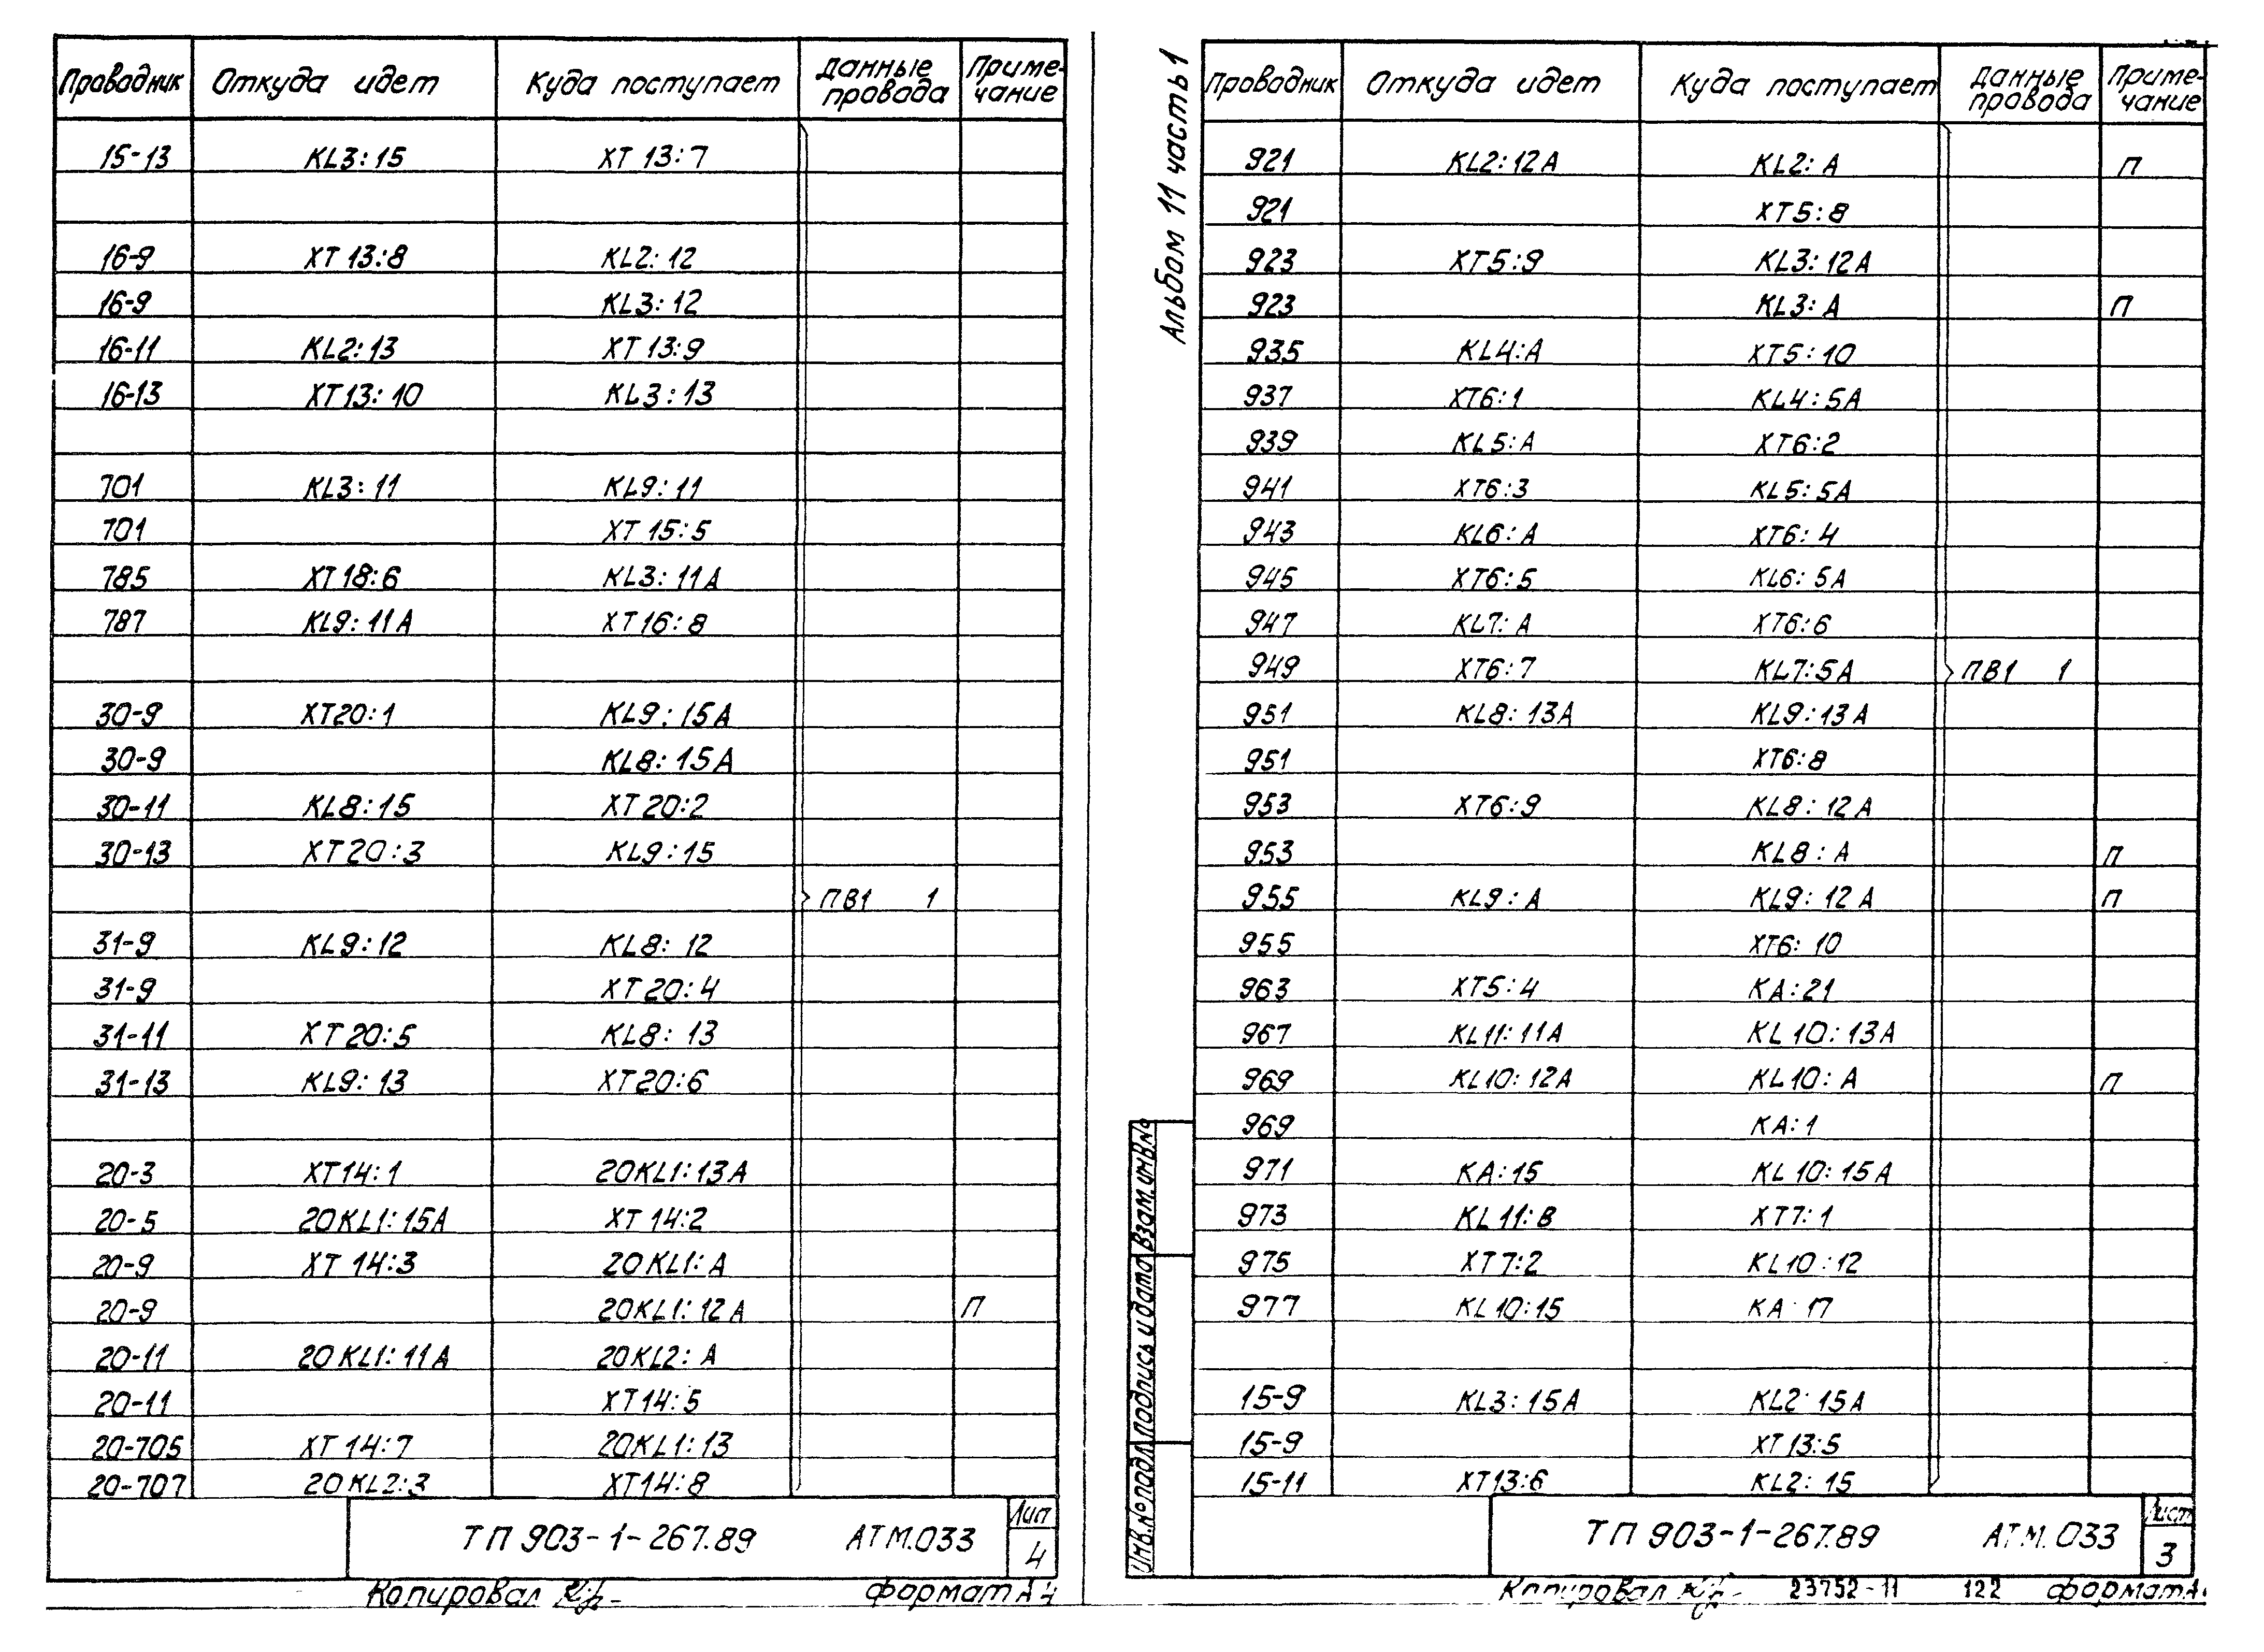 Проводник Откуда идет Куда поступает Данные провода Примечание
15-13 KL3:15 XT13:7
16-9 XT13:8 KL2:12
16-9 KL3:12
16-11 KL2:13 XT13:9
16-13 XT13:10 KL3:13
701 KL3:11 KL9:11
701 XT15:5
785 XT18:6 KL3:11A
787 KL9:11A XT16:8
30-9 XT20:1 KL9:15A
30-9 KL8:15A
30-11 KL8:15 XT20:2
30-13 XT20:3 KL9:15
ПВ1 1
31-9 KL9:12 KL8:12
31-9 XT20:4
31-11 XT20:5 KL8:13
31-13 KL9:13 XT20:6
20-3 XT14:1 20KL1:13A
20-5 20KL1:15A XT14:2
20-9 XT14:3 20KL1:A
20-9 20KL1:12A П
20-11 20KL1:11A 20KL2:A
20-11 XT14:5
20-705 XT14:7 20KL1:13
20-707 20KL2:3 XT14:8
ТП 903-1-267.89 АТМ.033
4
Копировал
формат А4
Альбом 11 часть 1
Проводник Откуда идет Куда поступает Данные провода Примечание
921 KL2:12A KL2:A П
921 XT5:8
923 XT5:9 KL3:12A
923 KL3:A П
935 KL4:A XT5:10
937 XT6:1 KL4:5A
939 KL5:A XT6:2
941 XT6:3 KL5:5A
943 KL6:A XT6:4
945 XT6:5 KL6:5A
947 KL7:A XT6:6
949 XT6:7 KL7:5A ПВ1 1
951 KL8:13A KL9:13A
951 XT6:8
953 XT6:9 KL8:12A
953 KL8:A П
955 KL9:A KL9:12A П
955 XT6:10
963 XT5:4 KA:21
967 KL11:11A KL10:13A
969 KL10:12A KL10:A П
969 KA:1
971 KA:15 KL10:15A
973 KL11:B XT7:1
975 XT7:2 KL10:12
977 KL10:15 KA:17
15-9 KL3:15A KL2:15A
15-9 XT13:5
15-11 XT13:6 KL2:15
Взам.инв.№
Подпись и дата
Инв.№ подл.
ТП 903-1-267.89 АТМ.033
Лист
3
Копировал
23752-11 122
формат